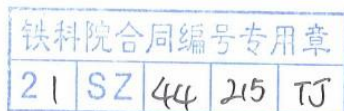 铁科院合同编号专用章
21 SZ 44 215 TJ